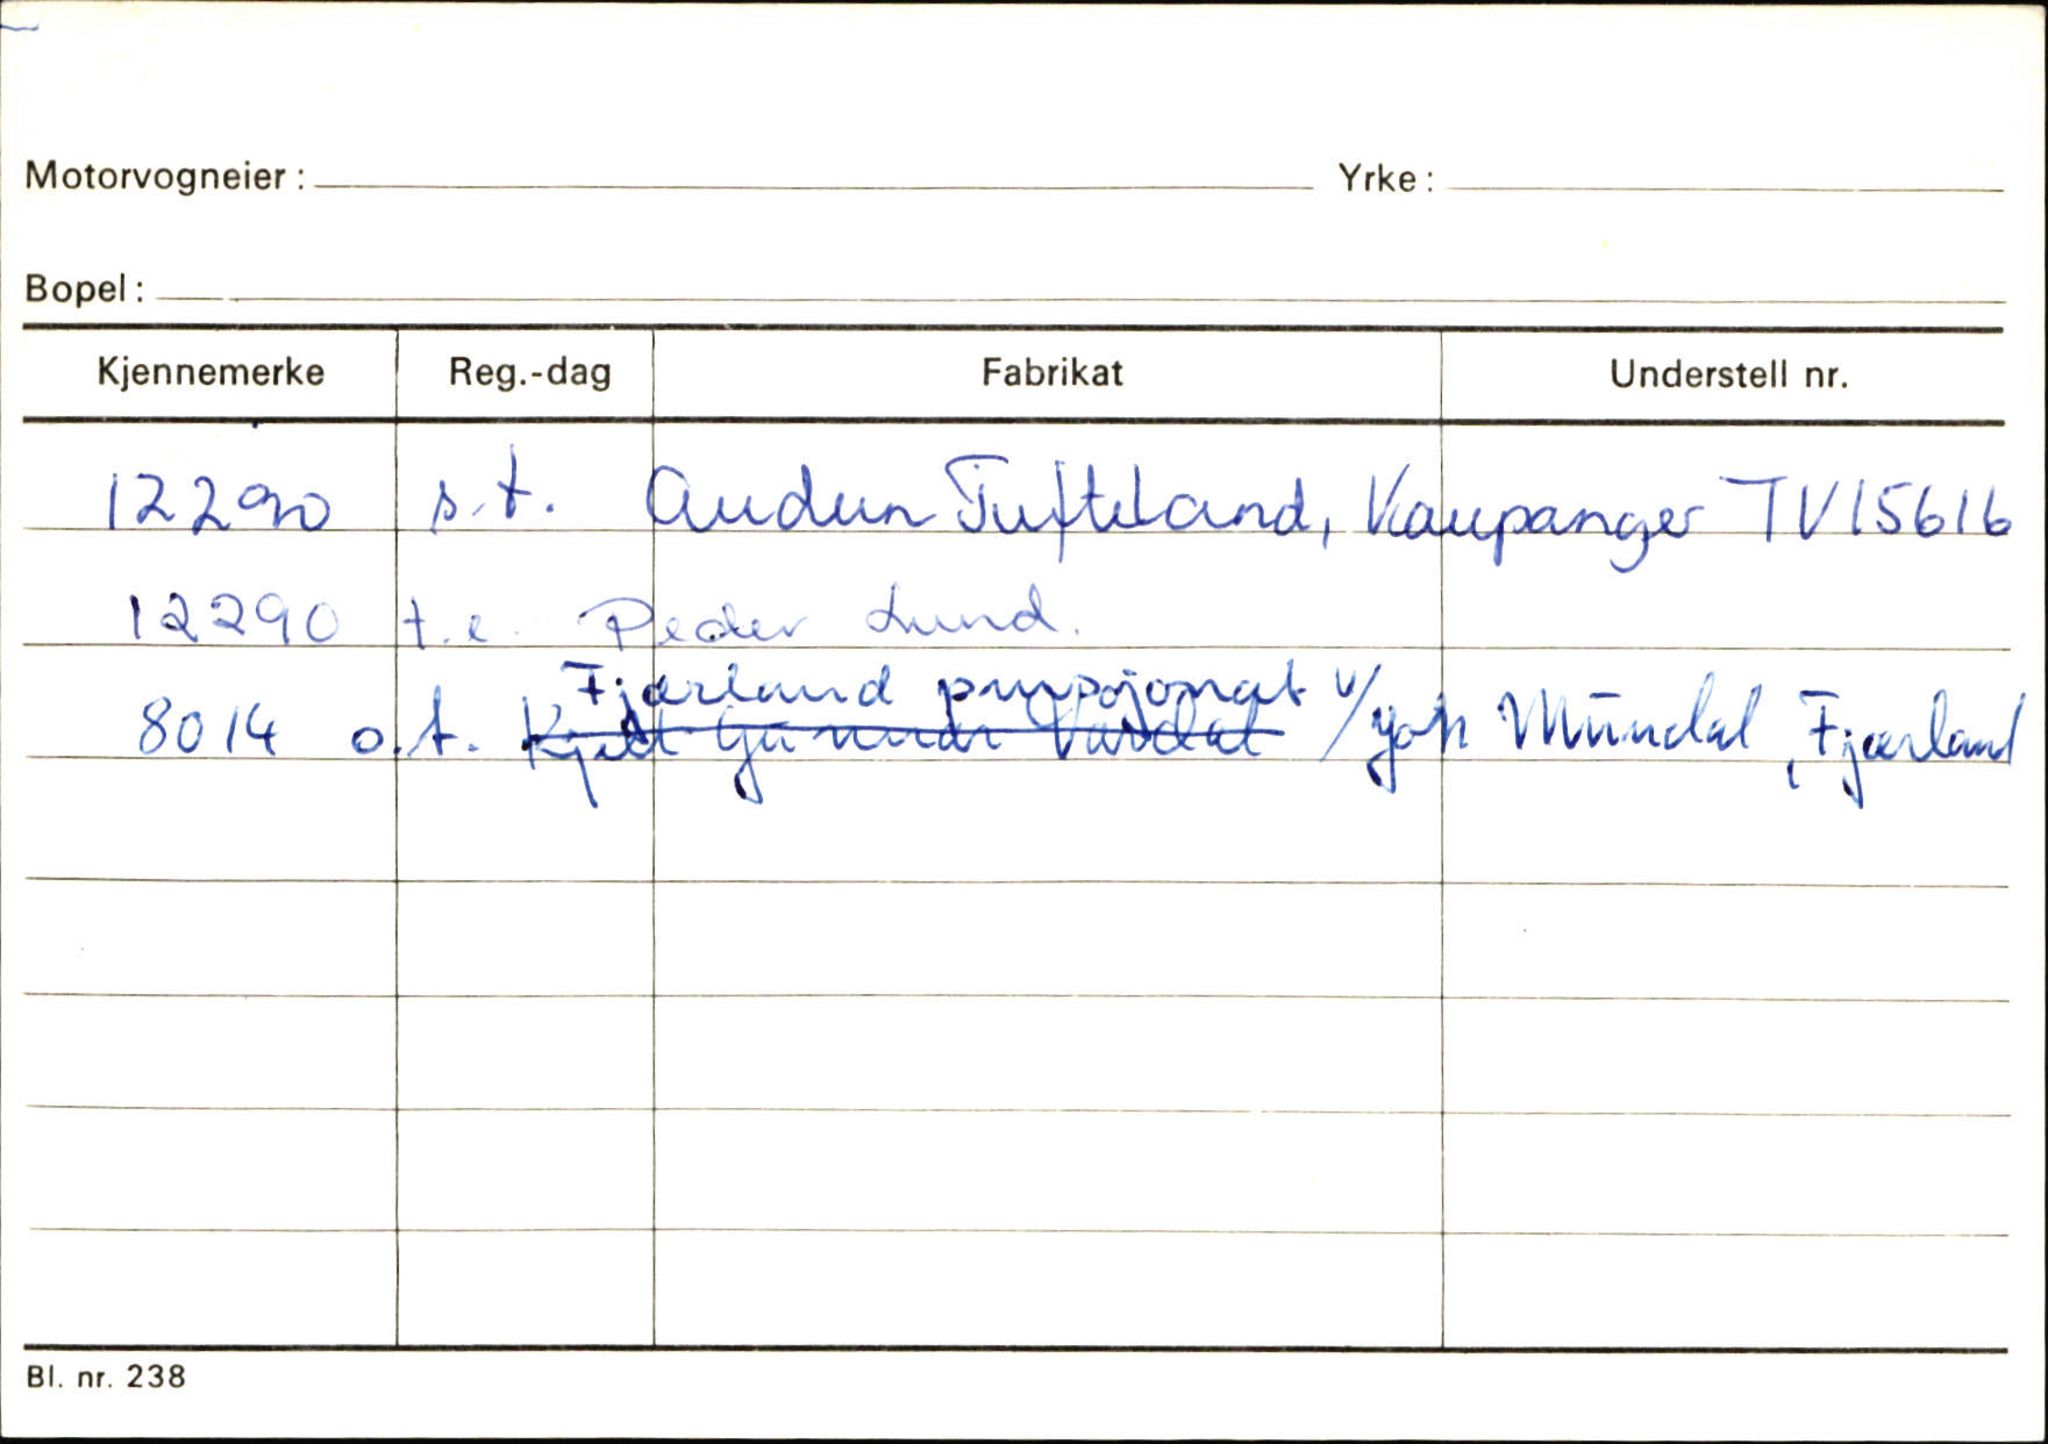 Motorvogneier: Yrke:
Bopel:
Kjennemerke Reg.-dag Fabrikat Understell nr.
12290 s.t. Audun Tufteland, Kaupanger TV15616
12290 t.e. Peder Lund.
Fjærland v/
8014 o.t. Kjell Gunnar Vardal Joh Mundal, Fjærland
Bl. nr. 238